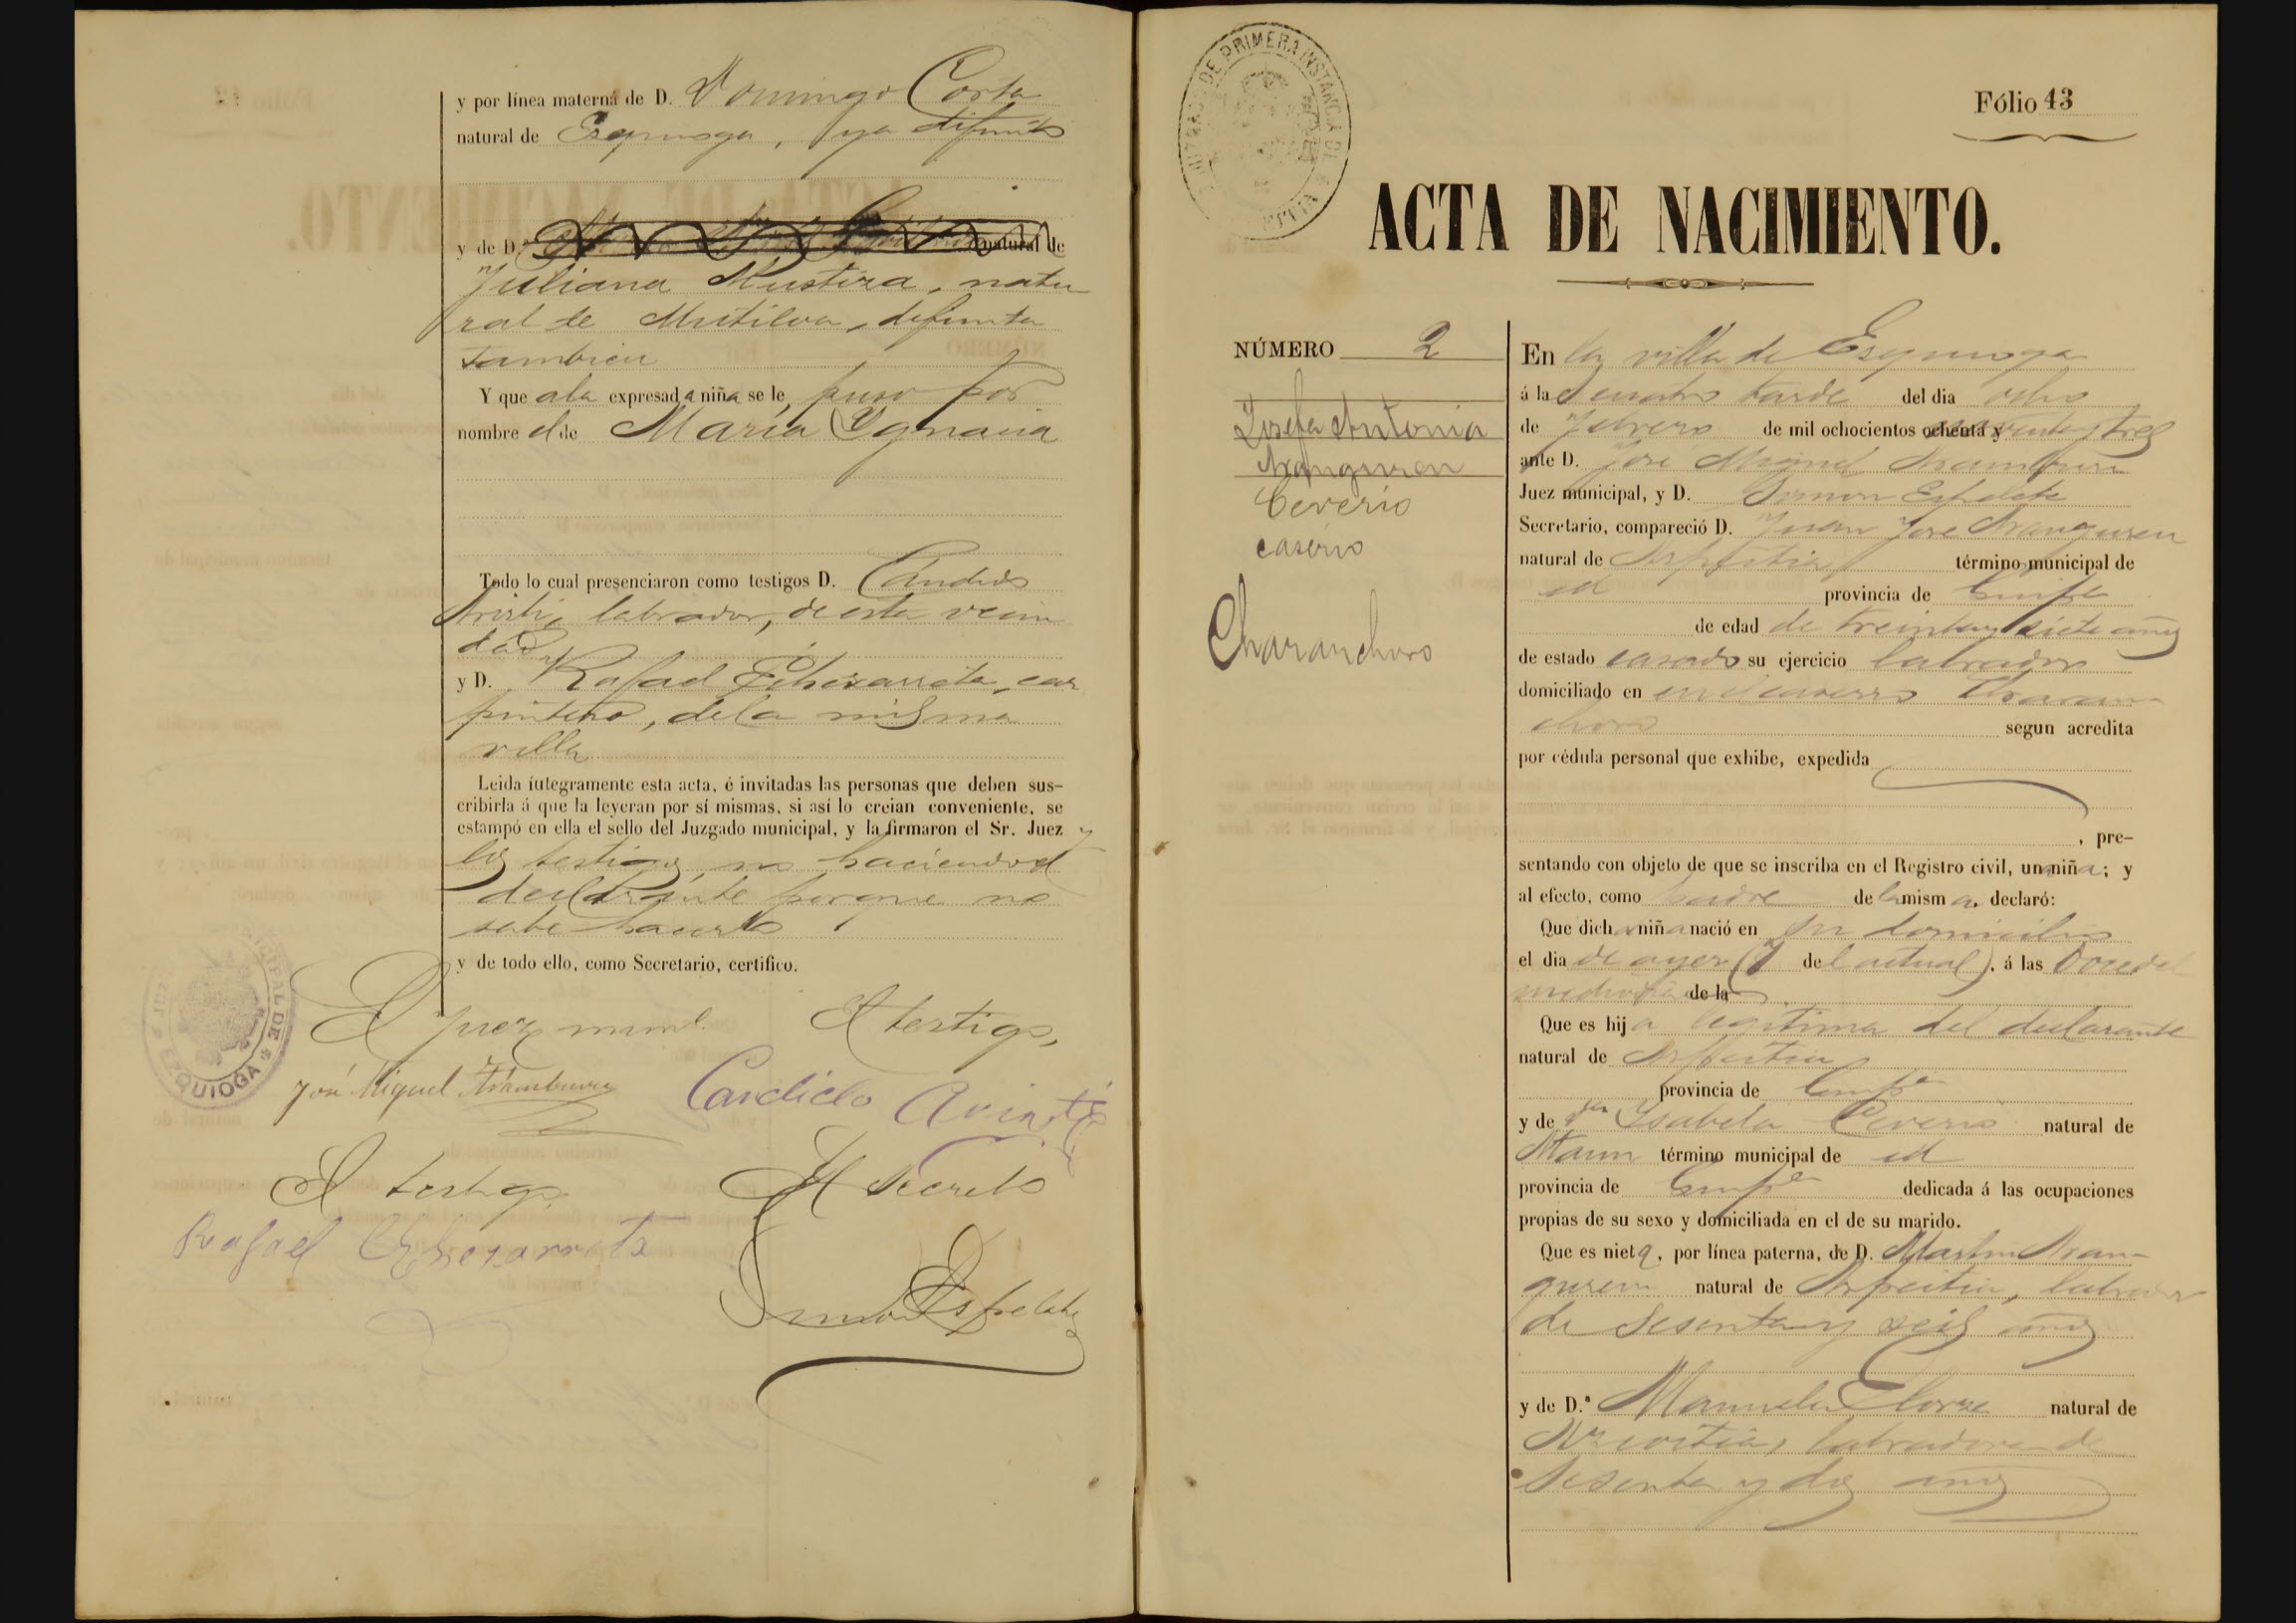 y por línea materna de D. Domingo Corta
natural de Ezquioga, ya difunto
y de D.ª natural de
Juliana Mustiza, natu
ral de Mutiloa, difunta
tambien
Y que a la expresada niña se le puso por
nombre el de María Ygnacia
Todo lo cual presenciaron como testigos D. Cándido
Aristi, labrador, de esta vecin
dad
y D. Rafael Echezarreta, car
pintero, de la misma
villa
Leida íutegramente esta acta, é invitadas las personas que deben sus-
cribirla á que la leyeran por sí mismas, si así lo creian conveniente, se
estampó en ella el sello del Juzgado municipal, y la firmaron el Sr. Juez y
los testigos no haciendo el
declarante porque no
sabe hacerlo
y de todo ello, como Secretario, certifico.
El juez munl. El testigo,
José Miguel Aramburu Candido Aristi
El testigo El Secreto
Rafael Echezarreta
Simon Espelete
EZQUIOGA
JUZGADO DE PRIMERA INSTANCIA DE
Fólio 43
ACTA DE NACIMIENTO.
NÚMERO 2
Josefa Antonia
Aranguren
Ceverio
caserio
Charanchoro
En la villa de Ezquioga
á las cuatro tarde del dia ocho
de Febrero de mil ochocientos ochenta y noventa y tres
ante D. José Miguel Aramburu
Juez municipal, y D. Simon Espelete
Secretario, compareció D. Juan José Aranguren
natural de Azpeitia término municipal de
id provincia de Guipa
de edad de treinta y siete años
de estado casado su ejercicio labrador
domiciliado en en el caserio Charan-
choro segun acredita
por cédula personal que exhibe, expedida
, pre-
sentando con objeto de que se inscriba en el Registro civil, una niña; y
al efecto, como padre de la misma, declaró:
Que dicha niña nació en su domicilio
el dia de ayer (7 del actual), á las doce del
medio dia de la
Que es hija legitima del declarante
natural de Azpeitia
provincia de Guipa
y de Ysabela Ceverio natural de
Ataun término municipal de id
provincia de Guipa dedicada á las ocupaciones
propias de su sexo y domiciliada en el de su marido.
Que es nieta, por línea paterna, de D. Martin Aran-
guren natural de Azpeitia, labrador
de sesenta y seis años
y de D.ª Manuela Elorza natural de
Azcoitia, labradora de
sesenta y dos años